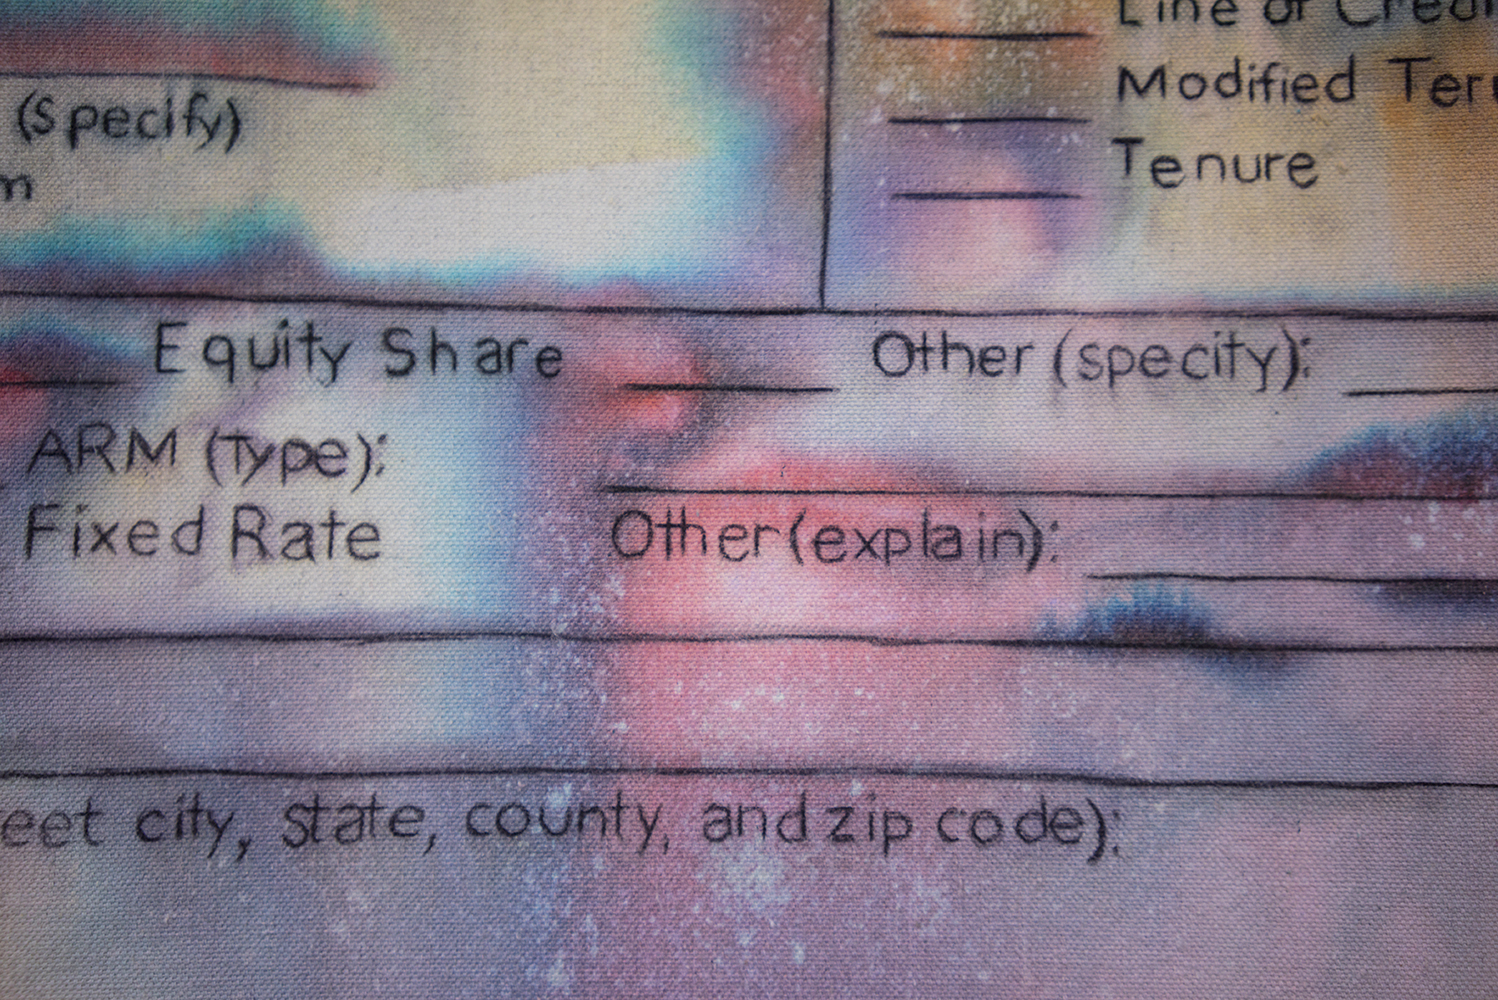 Line of
(Specify)
Modified
Tenure
Equity Share
Other (specify):
ARM (Type):
Fixed Rate
Other (explain):
city, state, county, and zip code):